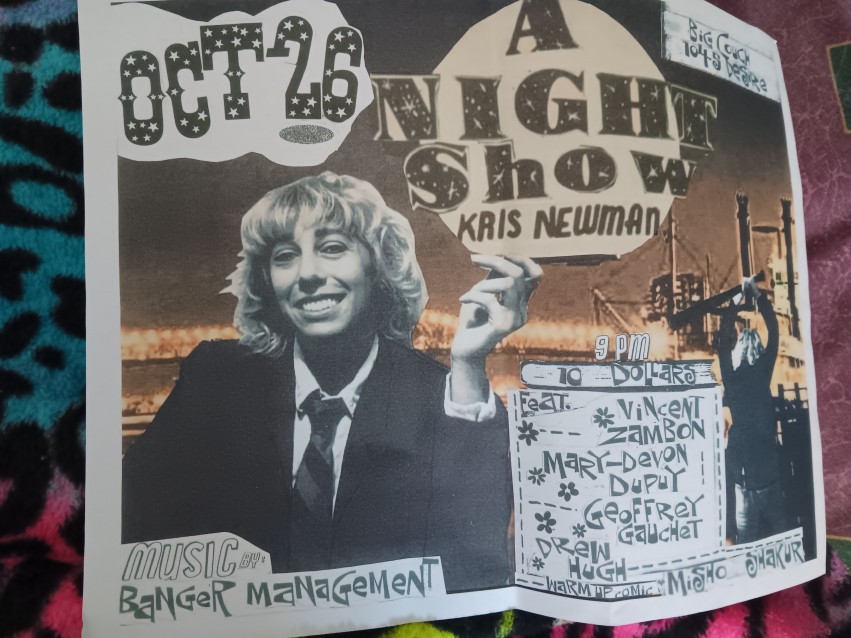 OCT 26
A
NIGHT
Show
KRIS NEWMAN
Big Couch
1045 Desire
9 PM
10 DOLLARS
FEAT.
VINCENT
ZAMBON
MARY-DEVON
DUPUY
GEOFFREY
GAUCHET
DREW
HUGH
WARM UP COMIC: MISHO SHAKUR
MUSIC BY:
BANGER MANAGEMENT